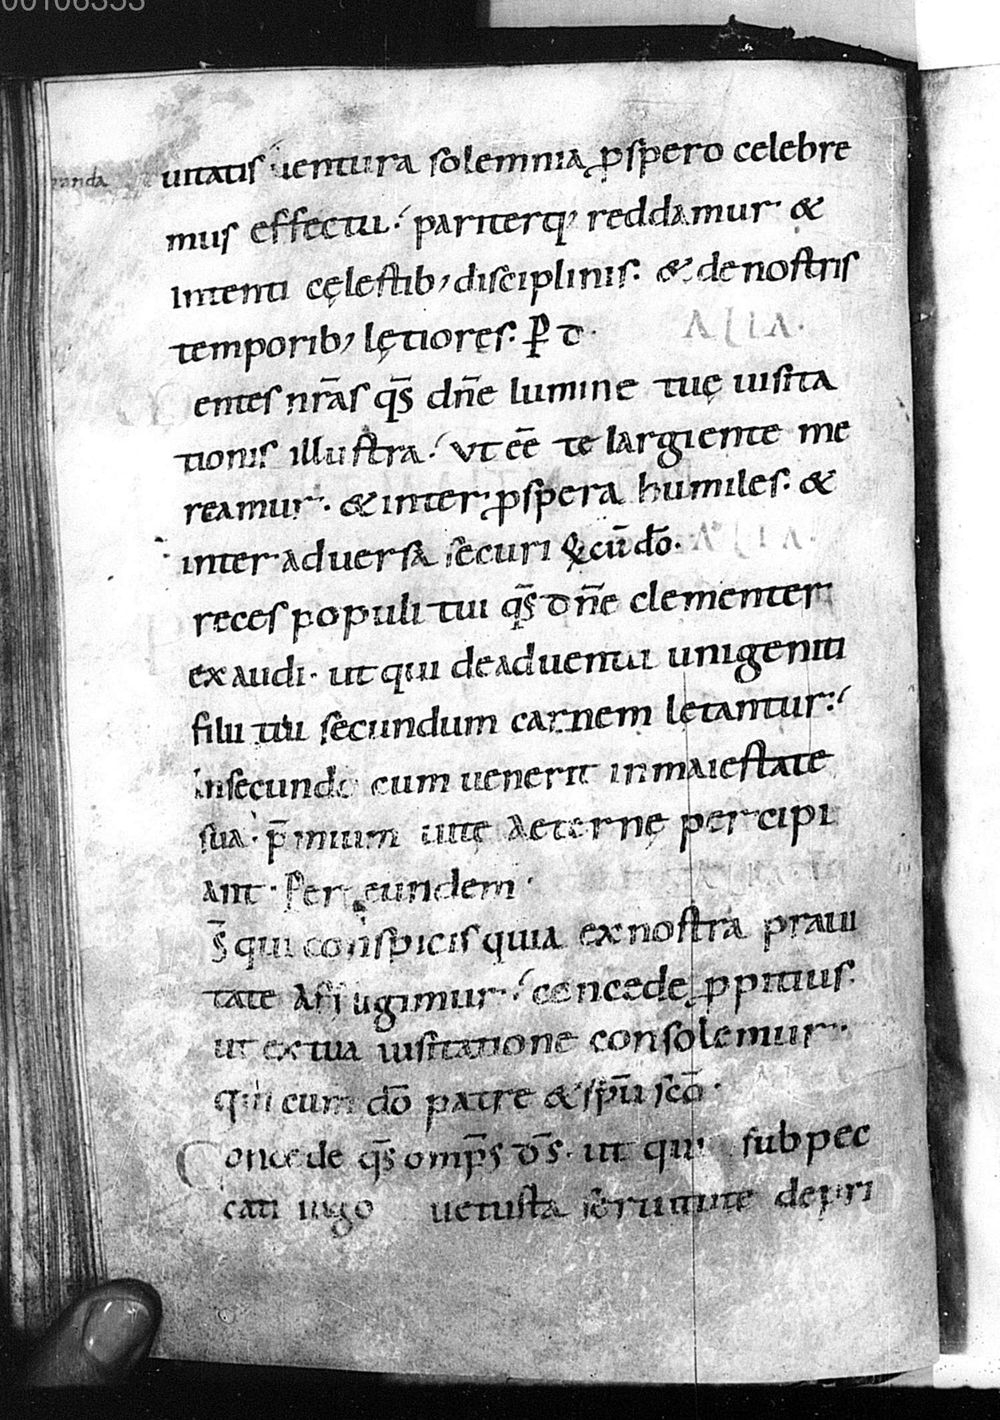 00106353
uitatis uentura solemnia ꝓspero celebre
mus effectu. pariterq; reddamur &
intenti cęlestib; disciplinis. & de nostris
temporib; lętiores. P̄ D. ALIA.
entes nr̄as qs̄ dn̄e lumine tuę uisita
tionis illustra. Ut eē te largiente me
reamur. & inter ꝓspera humiles. &
inter aduersa securi Q cū dō. ALIA.
reces populi tui qs̄ dn̄e clementer
exaudi. ut qui de aduentu unigeniti
filii tui secundum carnem lętantur.
in secundo cum uenerit in maiestate
sua. p̄mium uitę aeternę percipi
ant. Per eundem.
S̄ qui conspicis quia ex nostra praui
tate affligimur. concede ꝓpitius.
ut ex tua uisitatione consolemur.
qui cum dō patre & sp̄u scō.
Concede qs̄ omp̄s ds̄. ut qui sub pec
cati iugo uetusta seruitute depri